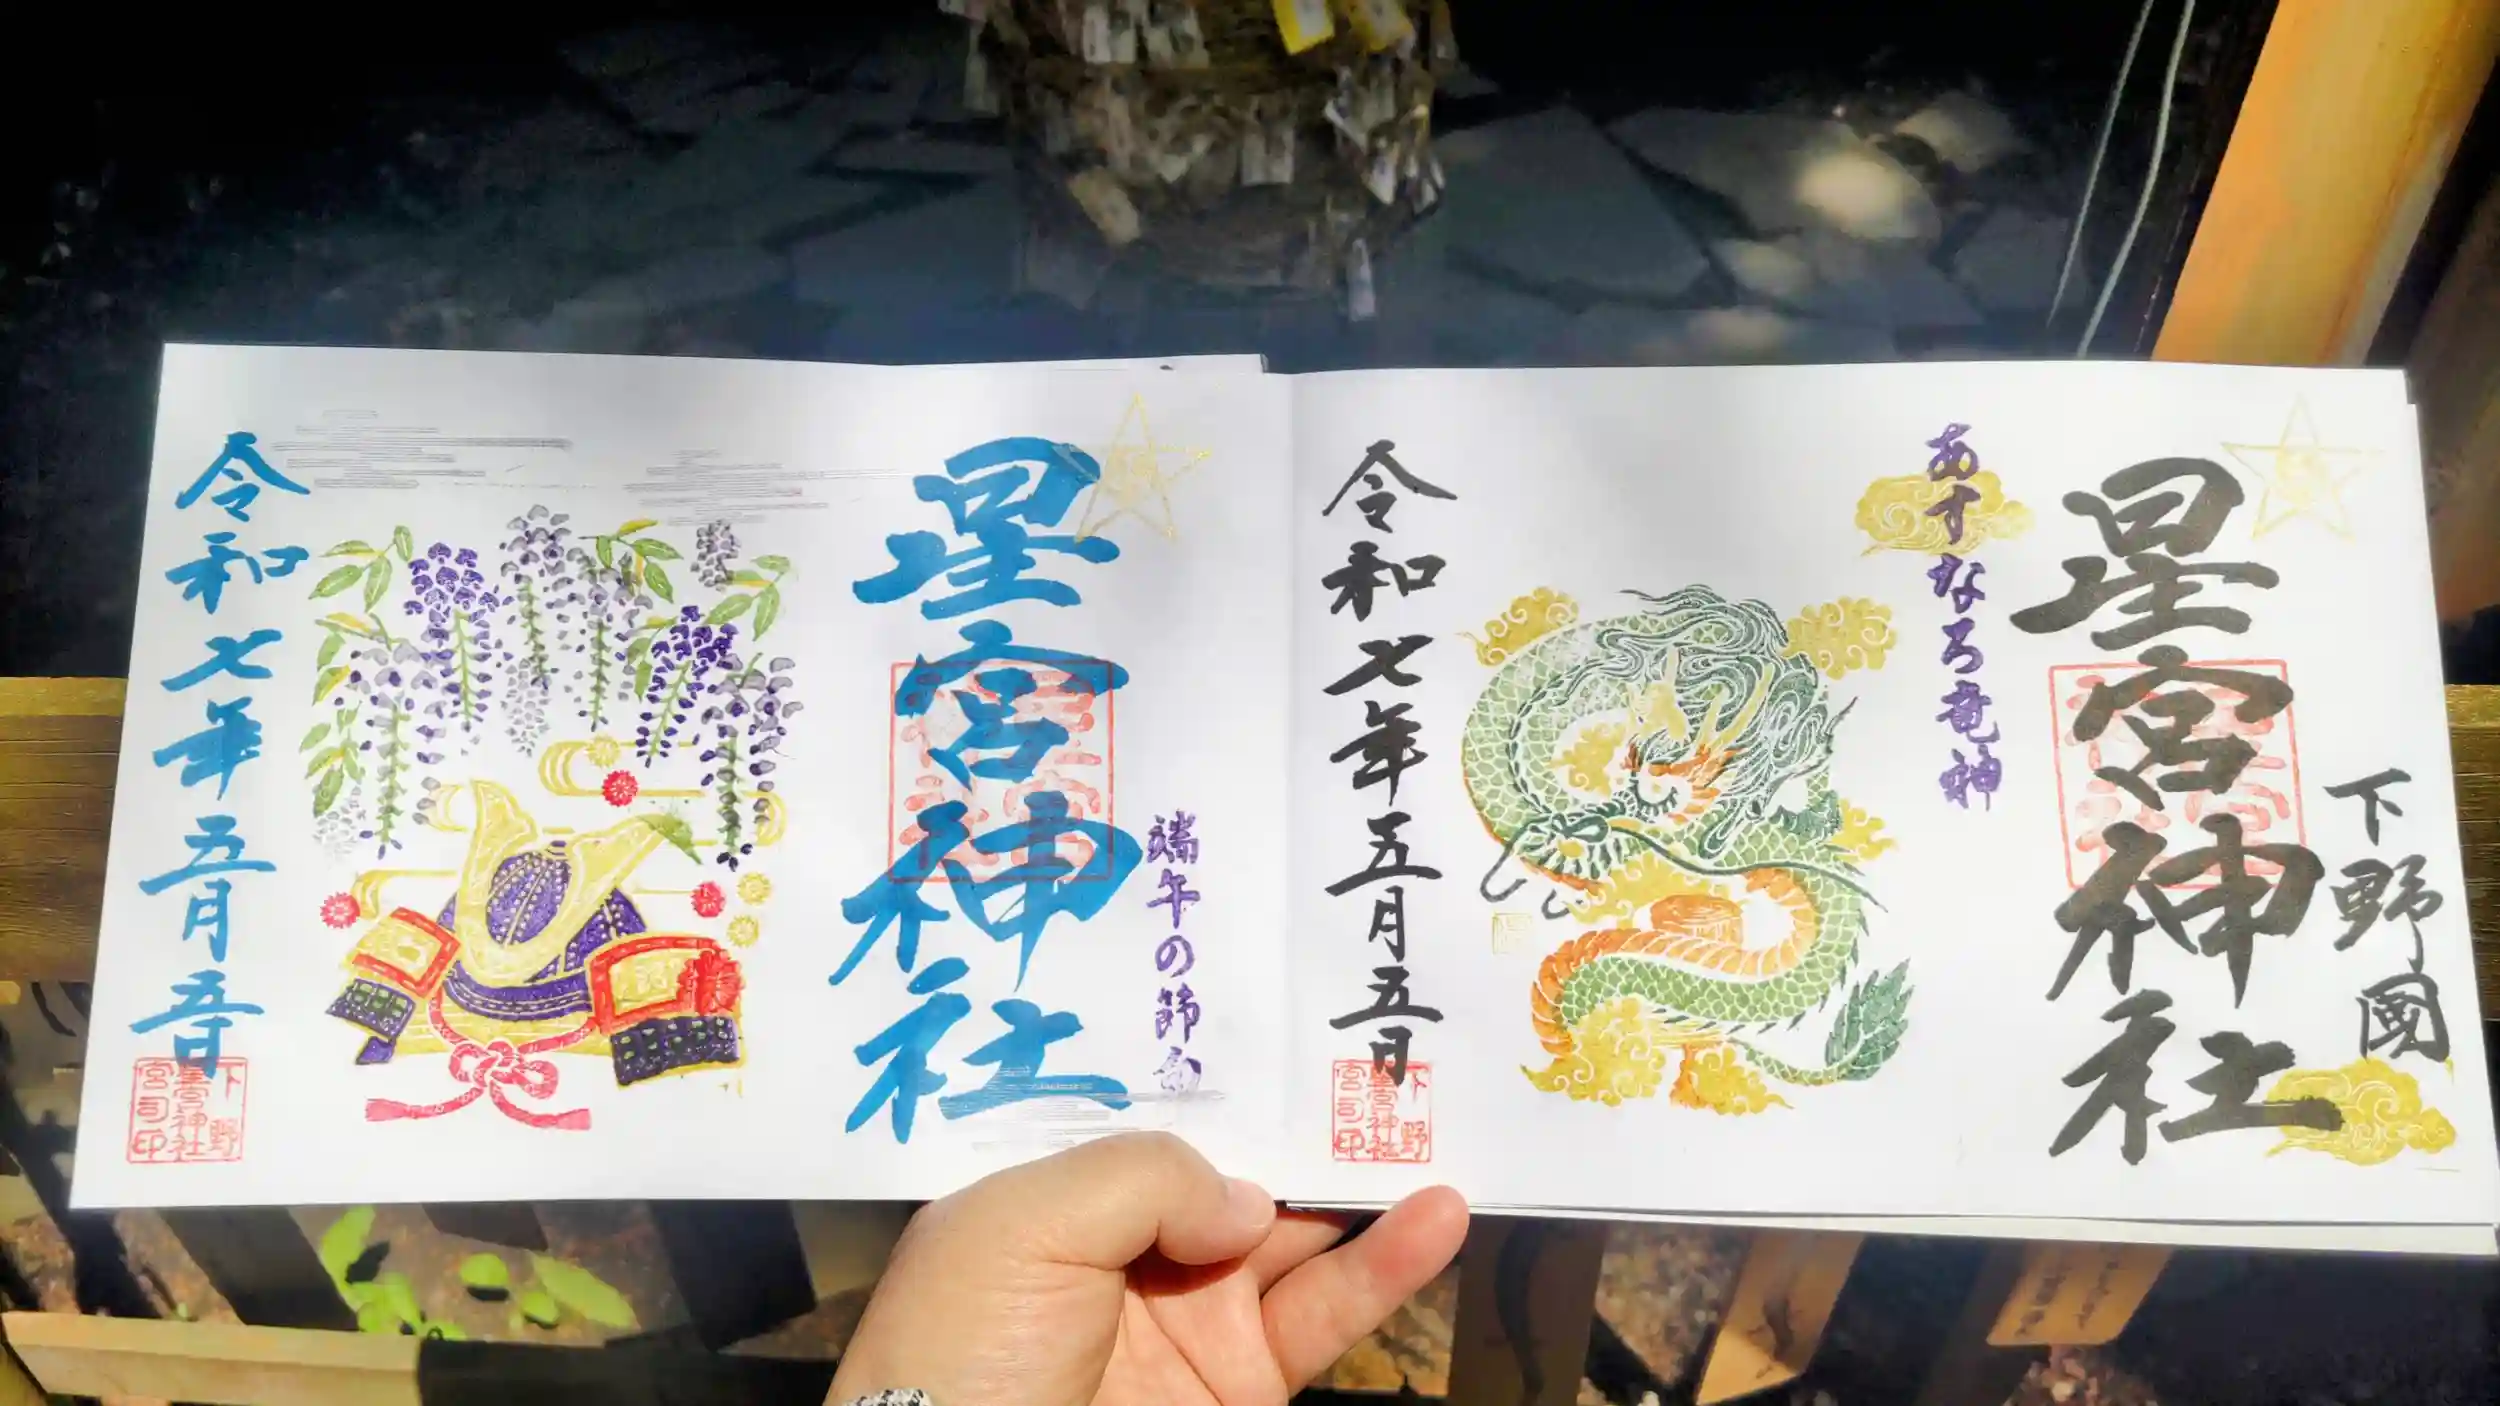 下野國
星宮神社
あすなろ竜神
令和七年五月五日
下野
星宮神社
宮司印
端午の節句
星宮神社
令和七年五月五日
下野
星宮神社
宮司印